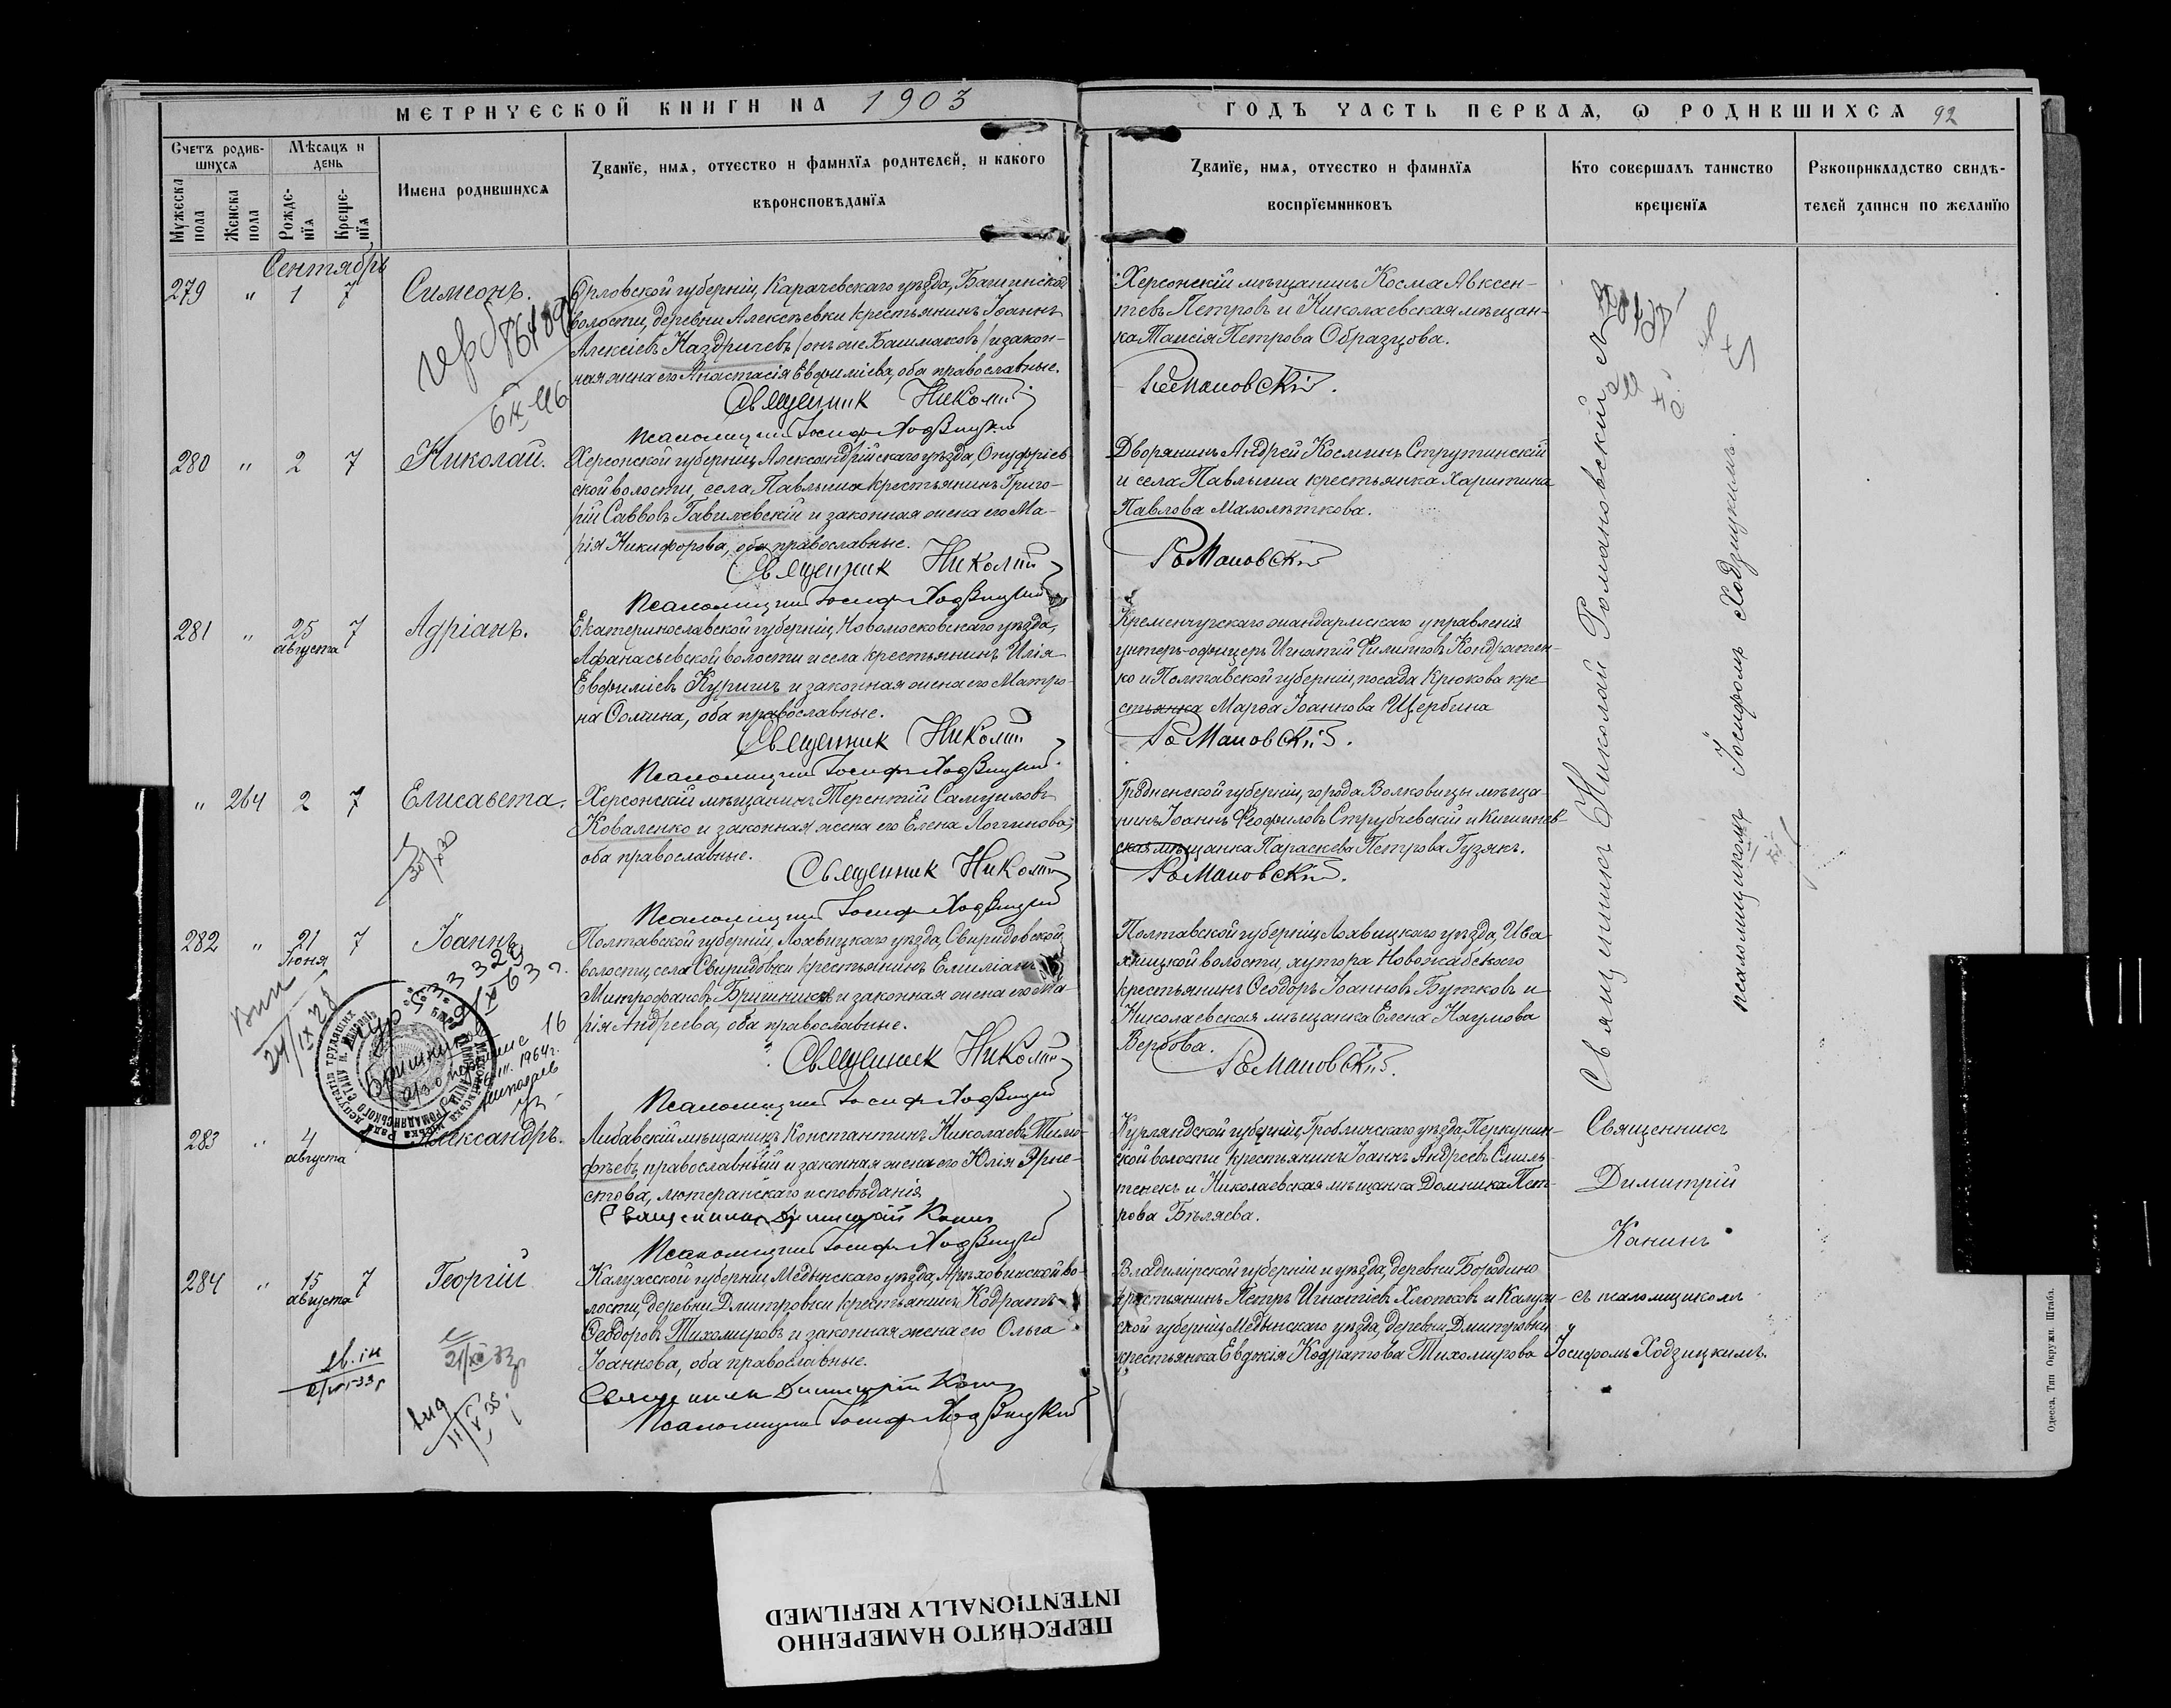 МЕТРИЧЕСКОЙ КНИГИ НА 1903
ГОДЪ ЧАСТЬ ПЕРВАЯ, Ѡ РОДИВШИХСЯ 92
Счетъ родив-
шихся
Мѣсяцъ и
день
Мужеска
пола
Женска
пола
Рожде-
нїя
Креще-
нїя
Имена родившихся
Званїе, имя, отчество и фамилїя родителей, и какого
вѣроисповѣданїя
Званїе, имя, отчество и фамилїя
воспрїемниковъ
Кто совершалъ таинство
крещенїя
Рукоприкладство свидѣ-
телей записи по желанїю
Сентябрь
279 " 1 7 Симеонъ.
Орловской губерніи, Карачевскаго уѣзда,
волости, деревни Алексѣевки крестьянинъ Іоаннъ
Алексіевъ Каздричевъ (онъ же Башмаковъ) и закон-
ная жена его Анастасія Евфиміева, оба православные.
Священник Николай
Псаломщикъ Іосифъ Ходзицкій
Херсонскій мѣщанинъ Косма Авксен-
тіевъ Петровъ и Николаевская мѣщан-
ка Таисія Петрова Образцова.
Романовскій.
280 " 2 7 Николай.
Херсонской губерніи, Александрійскаго уѣзда, Онуфріев-
ской волости, села Павлыша крестьянинъ Григо-
рій Саввовъ Гавилевскій и законная жена его Ма-
рія Никифорова, оба православные.
Священник Николай
Псаломщикъ Іосифъ Ходзицкій
Дворянинъ Андрей Косминъ Струтинскій
и села Павлыша крестьянка Харитина
Павлова Малолѣткова.
Романовскій
281 " 25 7 Адріанъ.
августа
Екатеринославской губерніи, Новомосковскаго уѣзда,
Афанасьевской волости и села крестьянинъ Илія
Евфиміевъ Куришъ и законная жена его Матро-
на Ѳомина, оба православные.
Священник Николай
Псаломщикъ Іосифъ Ходзицкій.
Кременчугскаго жандармскаго управленія
унтеръ-офицеръ Игнатій Филипповъ Кондратен-
ко и Полтавской губерніи, посада Крюкова кре-
стьянка Марѳа Іоаннова Щербина
Романовскій.
" 264 2 7 Елисавета.
Херсонскій мѣщанинъ Терентій Самуиловъ
Коваленко и законная жена его Елена Логгинова,
оба православные.
Священник Николай
Псаломщикъ Іосифъ Ходзицкій
Гродненской губерніи, города Волковицы мѣща-
нинъ Іоаннъ Феофиловъ Струбчевскій и Кишинев-
ская мѣщанка Параскева Петрова Гузякъ.
Романовскій.
282 " 21 7 Іоаннъ
Іюня
Полтавской губерніи, Лохвицкаго уѣзда, Свиридовской
волости, села Свиридовки крестьянинъ Емиліанъ
Митрофановъ Бришникъ и законная жена его Ма-
рія Андреева, оба православные.
Священник Николай
Псаломщикъ Іосифъ Ходзицкій
Полтавской губерніи, Лохвицкаго уѣзда, Ива-
хницкой волости, хутора Новожабскаго
крестьянинъ Ѳеодоръ Іоанновъ Бутковъ и
Николаевская мѣщанка Елена Наумова
Вербова.
Романовскій.
283 " 4 7 Александръ.
августа
Либавскій мѣщанинъ Константинъ Николаевъ Тимо-
фѣевъ, православный и законная жена его Юлія Эрне-
стова, лютеранскаго исповѣданія
Священникъ Димитрій Канинъ
Псаломщикъ Іосифъ Ходзицкій
Курляндской губерніи, Гробинскаго уѣзда, Перкунен-
ской волости крестьянинъ Іоаннъ Андреевъ Смиль-
тенекъ и Николаевская мѣщанка Домника Пет-
рова Бѣляева.
Священникъ
Димитрій
Канинъ
284 " 15 7 Георгій
августа
Калужской губерніи, Медынскаго уѣзда, во-
лости, деревни Дмитровки крестьянинъ Кодратъ
Ѳеодоровъ Тихомировъ и законная жена его Ольга
Іоаннова, оба православные.
Священникъ Димитрій Канинъ
Псаломщикъ Іосифъ Ходзицкій
Владимірской губерніи и уѣзда, деревни Бородино
крестьянинъ Петръ Игнатіевъ Хлопковъ и Калуж-
ской губерніи, Медынскаго уѣзда, деревни Дмитровки
крестьянка Евдокія Кодратова Тихомирова
съ псаломщикомъ
Іосифомъ Ходзицкимъ.
Священникъ Николай Романовскій
псаломщикомъ Іосифомъ Ходзицкимъ.
Одесса. Тип. Окружн. Штаба.
ПЕРЕСНЯТО НАМЕРЕННО
INTENTIONALLY REFILMED